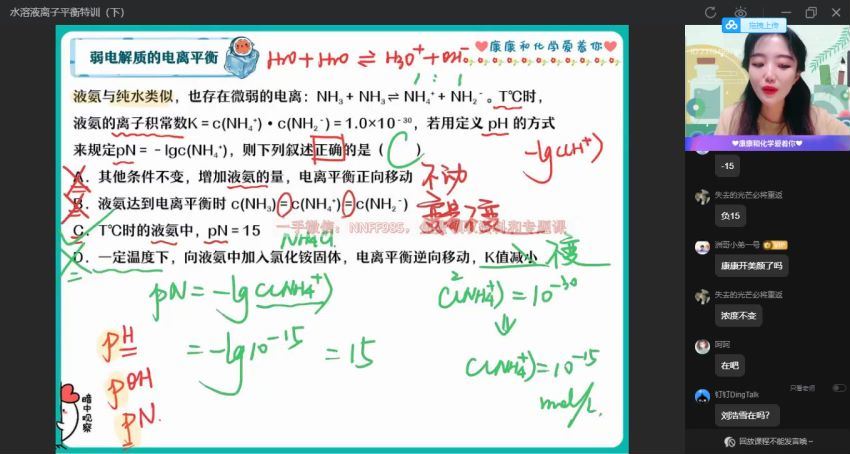 水溶液离子平衡特训（下）
拖拽上传
弱电解质的电离平衡
H₂O+H₂O⇌H₃O⁺+OH⁻
康康和化学爱着你
1 : 1
液氨与纯水类似，也存在微弱的电离：NH₃ + NH₃⇌ NH₄⁺ + NH₂⁻ 。T℃时，
液氨的离子积常数K = c(NH₄⁺)・c(NH₂⁻) = 1.0×10⁻³⁰，若用定义 pH 的方式
来规定pN = －lgc(NH₄⁺)，则下列叙述正确的是（ C ）
-lgc(H⁺)
A．其他条件不变，增加液氨的量，电离平衡正向移动 不动
B．液氨达到电离平衡时 c(NH₃) = c(NH₄⁺) = c(NH₂⁻)
一手微信：NNFF985，
C．T℃时的液氨中，pN = 15
NH₄Cl
D．一定温度下，向液氨中加入氯化铵固体，电离平衡逆向移动，K值减小 不变
pN = -lgc(NH₄⁺)
= -lg10⁻¹⁵ = 15
c²(NH₄⁺) = 10⁻³⁰
⇓
c(NH₄⁺) = 10⁻¹⁵
mol/L
pH
pOH
pN
暗中观察
康康和化学爱着你
-15
失去的光芒必将重返
负15
洲哥小弟一号
康康开美颜了吗
失去的光芒必将重返
浓度不变
阿阿
在吧
只看老师
钉钉DingTalk
刘浩雪在吗？
回放课程不能发言噢～